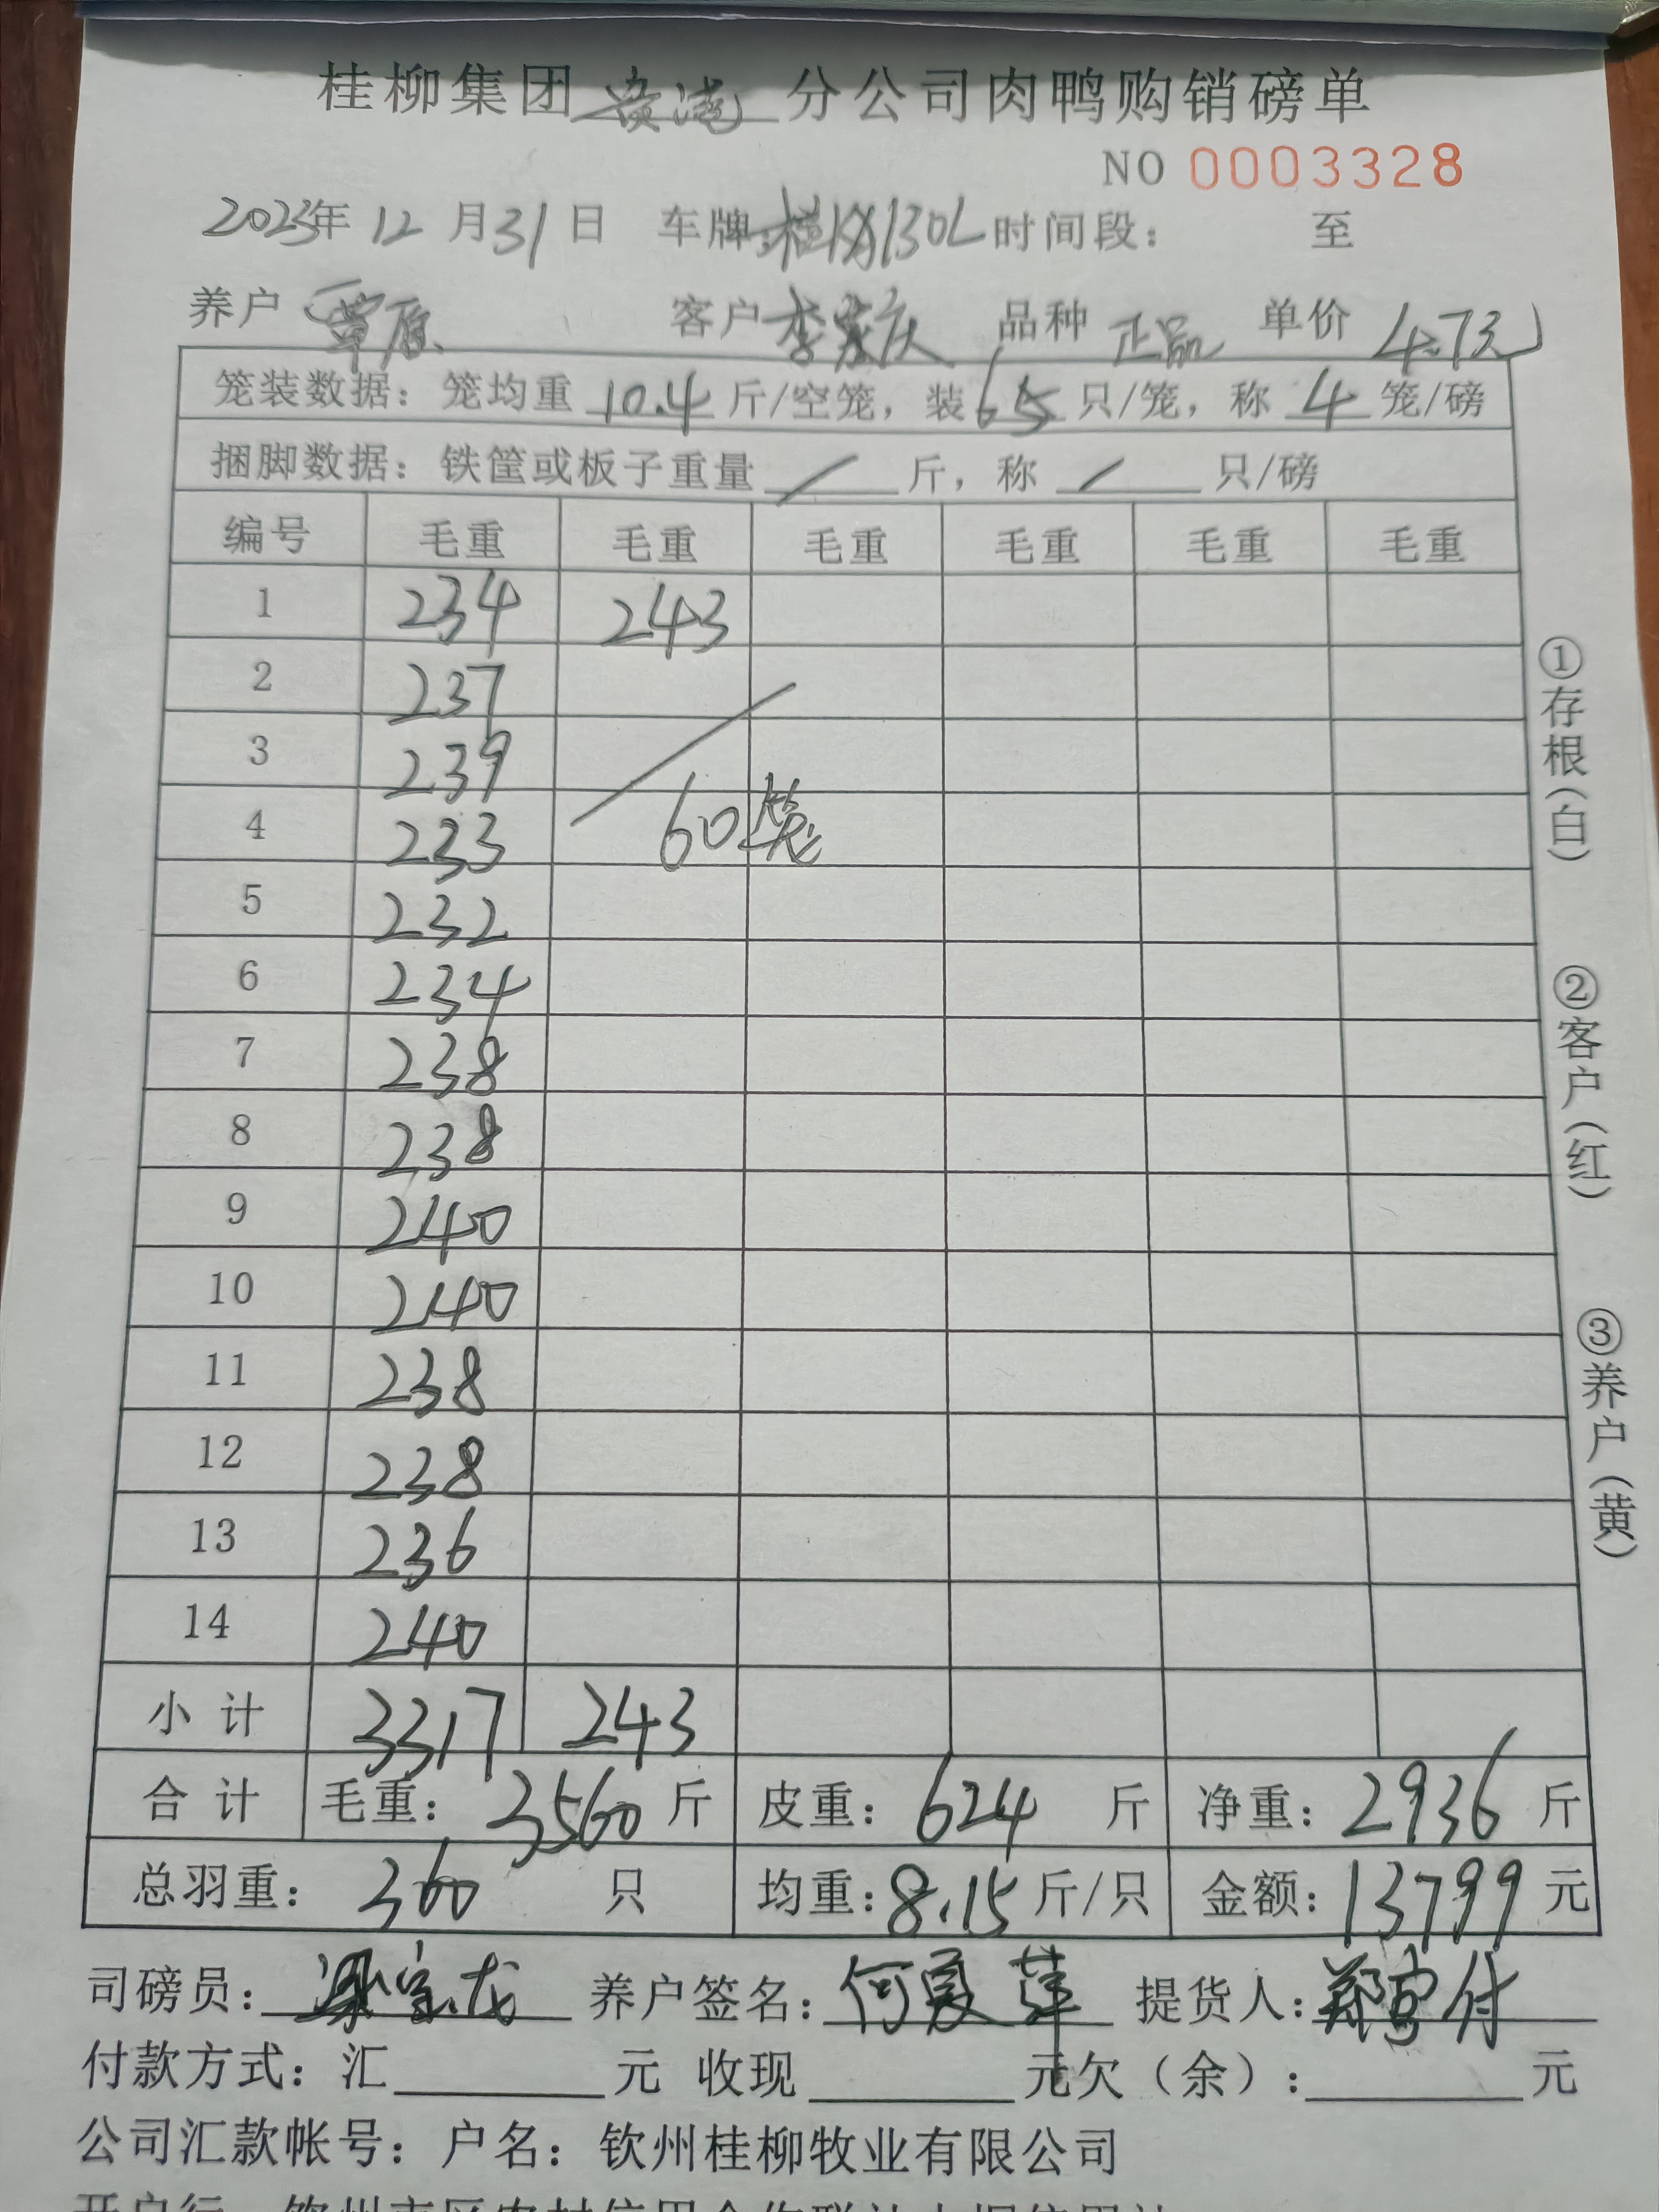 桂柳集团贵港分公司肉鸭购销磅单
NO 0003328
2023年 12 月 31 日 车牌: 130L 时间段: 至
养户 覃原 客户 李家庆 品种 正品 单价 4.7元
笼装数据: 笼均重 10.4 斤/空笼, 装 6 只/笼, 称 4 笼/磅
捆脚数据: 铁筐或板子重量 / 斤, 称 / 只/磅
编号 毛重 毛重 毛重 毛重 毛重 毛重
1 234 243
2 237
3 239
4 233 60笼
5 232
6 234
7 238
8 238
9 240
10 240
11 238
12 238
13 236
14 240
小计 3317 243
合计 毛重: 3560 斤 皮重: 624 斤 净重: 2936 斤
总羽重: 360 只 均重: 8.15 斤/只 金额: 13799 元
司磅员: 养户签名: 何夏萍 提货人:
付款方式: 汇 元 收现 元欠(余): 元
公司汇款帐号: 户名: 钦州桂柳牧业有限公司
①存根(白)
②客户(红)
③养户(黄)